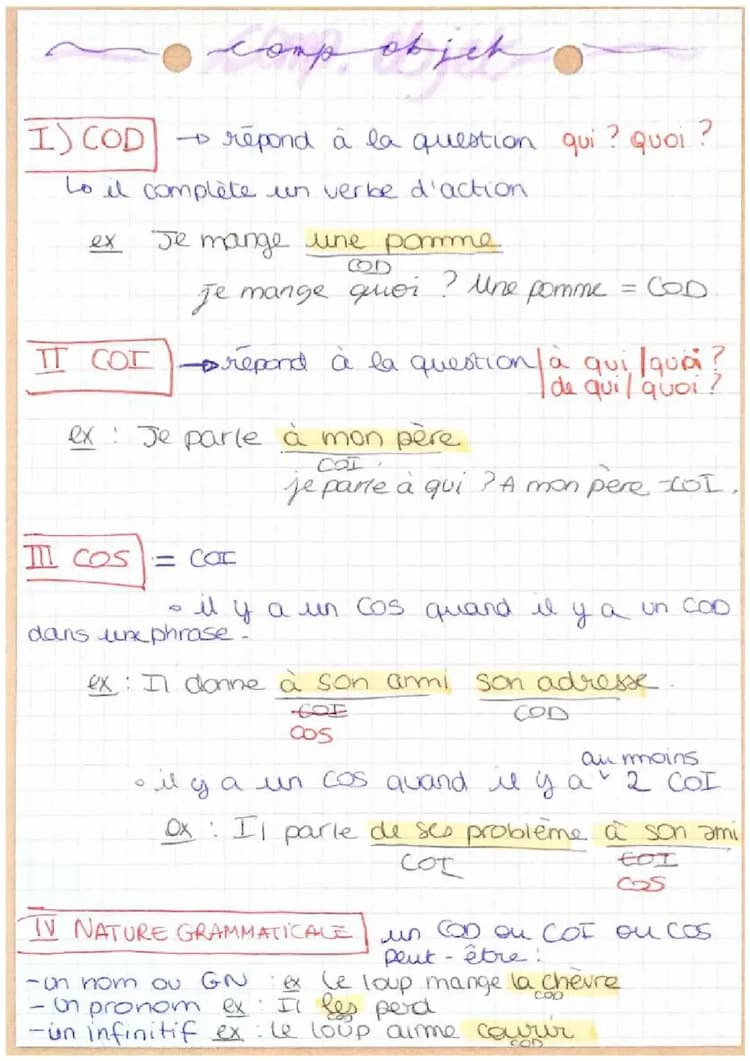 comp objet
I) COD → répond à la question qui ? quoi ?
↳ il complète un verbe d'action
ex Je mange une pomme
COD
je mange quoi ? Une pomme = COD
II COI → répond à la question | à qui / quoi ?
| de qui / quoi ?
ex : Je parle à mon père
COI
je parle à qui ? A mon père = COI.
III COS = COI
• il y a un COS quand il y a un COD
dans une phrase.
ex : Il donne à son ami son adresse.
COI COD
COS
au moins
• il y a un COS quand il y a ˅ 2 COI
ex : Il parle de ses problème à son ami
COI COI
COS
IV NATURE GRAMMATICALE un COD ou COI ou COS
peut-être :
- un nom ou GN : ex Le loup mange la chèvre
COD
- Un pronom ex : Il les perd
COD
- un infinitif ex : le loup aime courir
COD